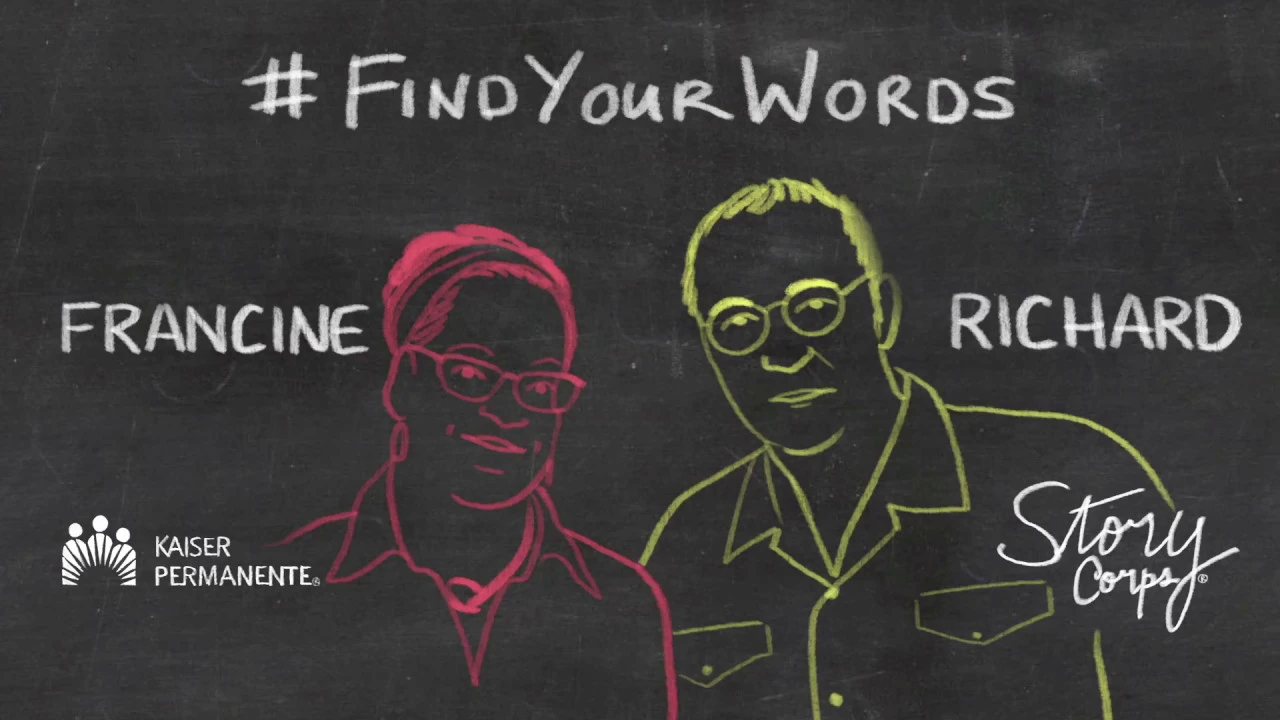 #FINDYOURWORDS
FRANCINE
RICHARD
KAISER
PERMANENTE®
Story
Corps®